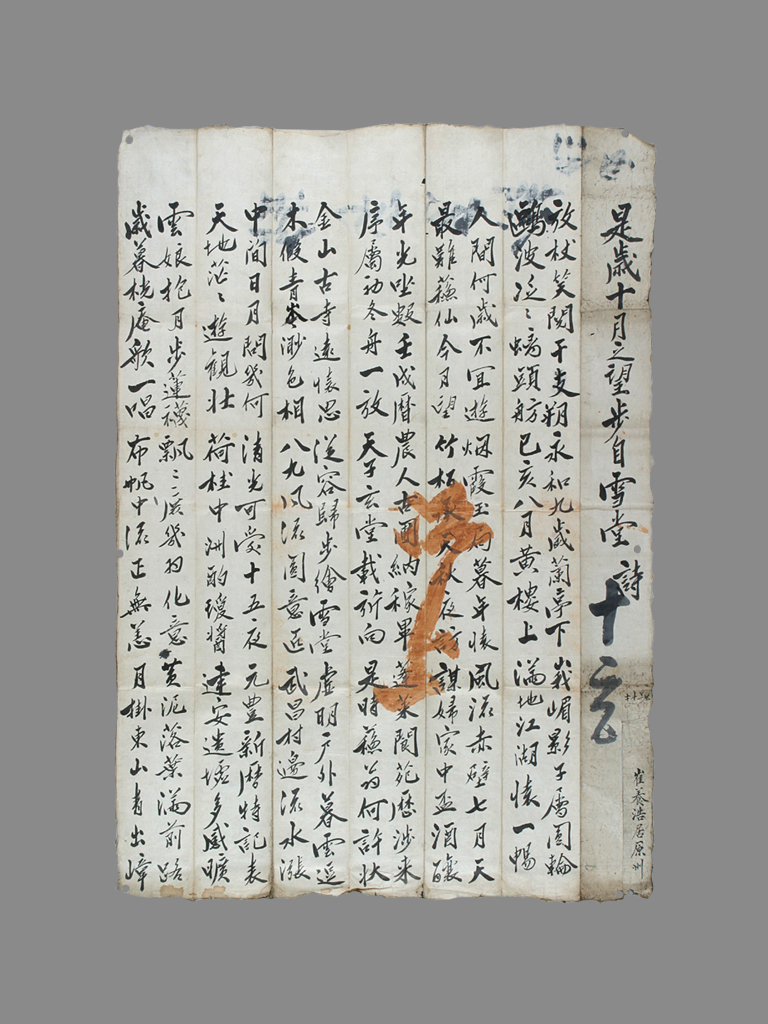 是歲十月之望步自雪堂 詩
崔養浩居原州
放杖笑閱干支朔 永和九歲蘭亭下 峩嵋影子屬圓輪
鷗波泛〻螭頭舫 己亥八月黃樓上 滿地江湖懷一暢
人間何歲不宜遊 烟霞玉局暮年懷 風流赤壁七月天
最難蘓仙今月望 竹栢承天秋夜訪 謀婦家中盃酒釀
年光坐數壬戌曆 農人古圃納稼畢 蓬萊閬苑歷涉來
序屬初冬舟一放 天子玄堂載祈向 是時蘓翁何許狀
金山古寺遠懷思 從容歸步繪雪堂 虛明戶外暮雲遮
木假青峯渺色相 八九風流圓意匠 武昌村邊流水漲
中間日月問幾何 清光可愛十五夜 元豊新曆特記表
天地茫〻遊觀壯 荷桂中洲酌瓊醬 建安遺墟多感曠
雲娘抱月步蓮襪 飄〻幾羽化意 黃泥落葉滿前路
歲暮桄庵歌一唱 布帆中流正無恙 月掛東山看出嶂